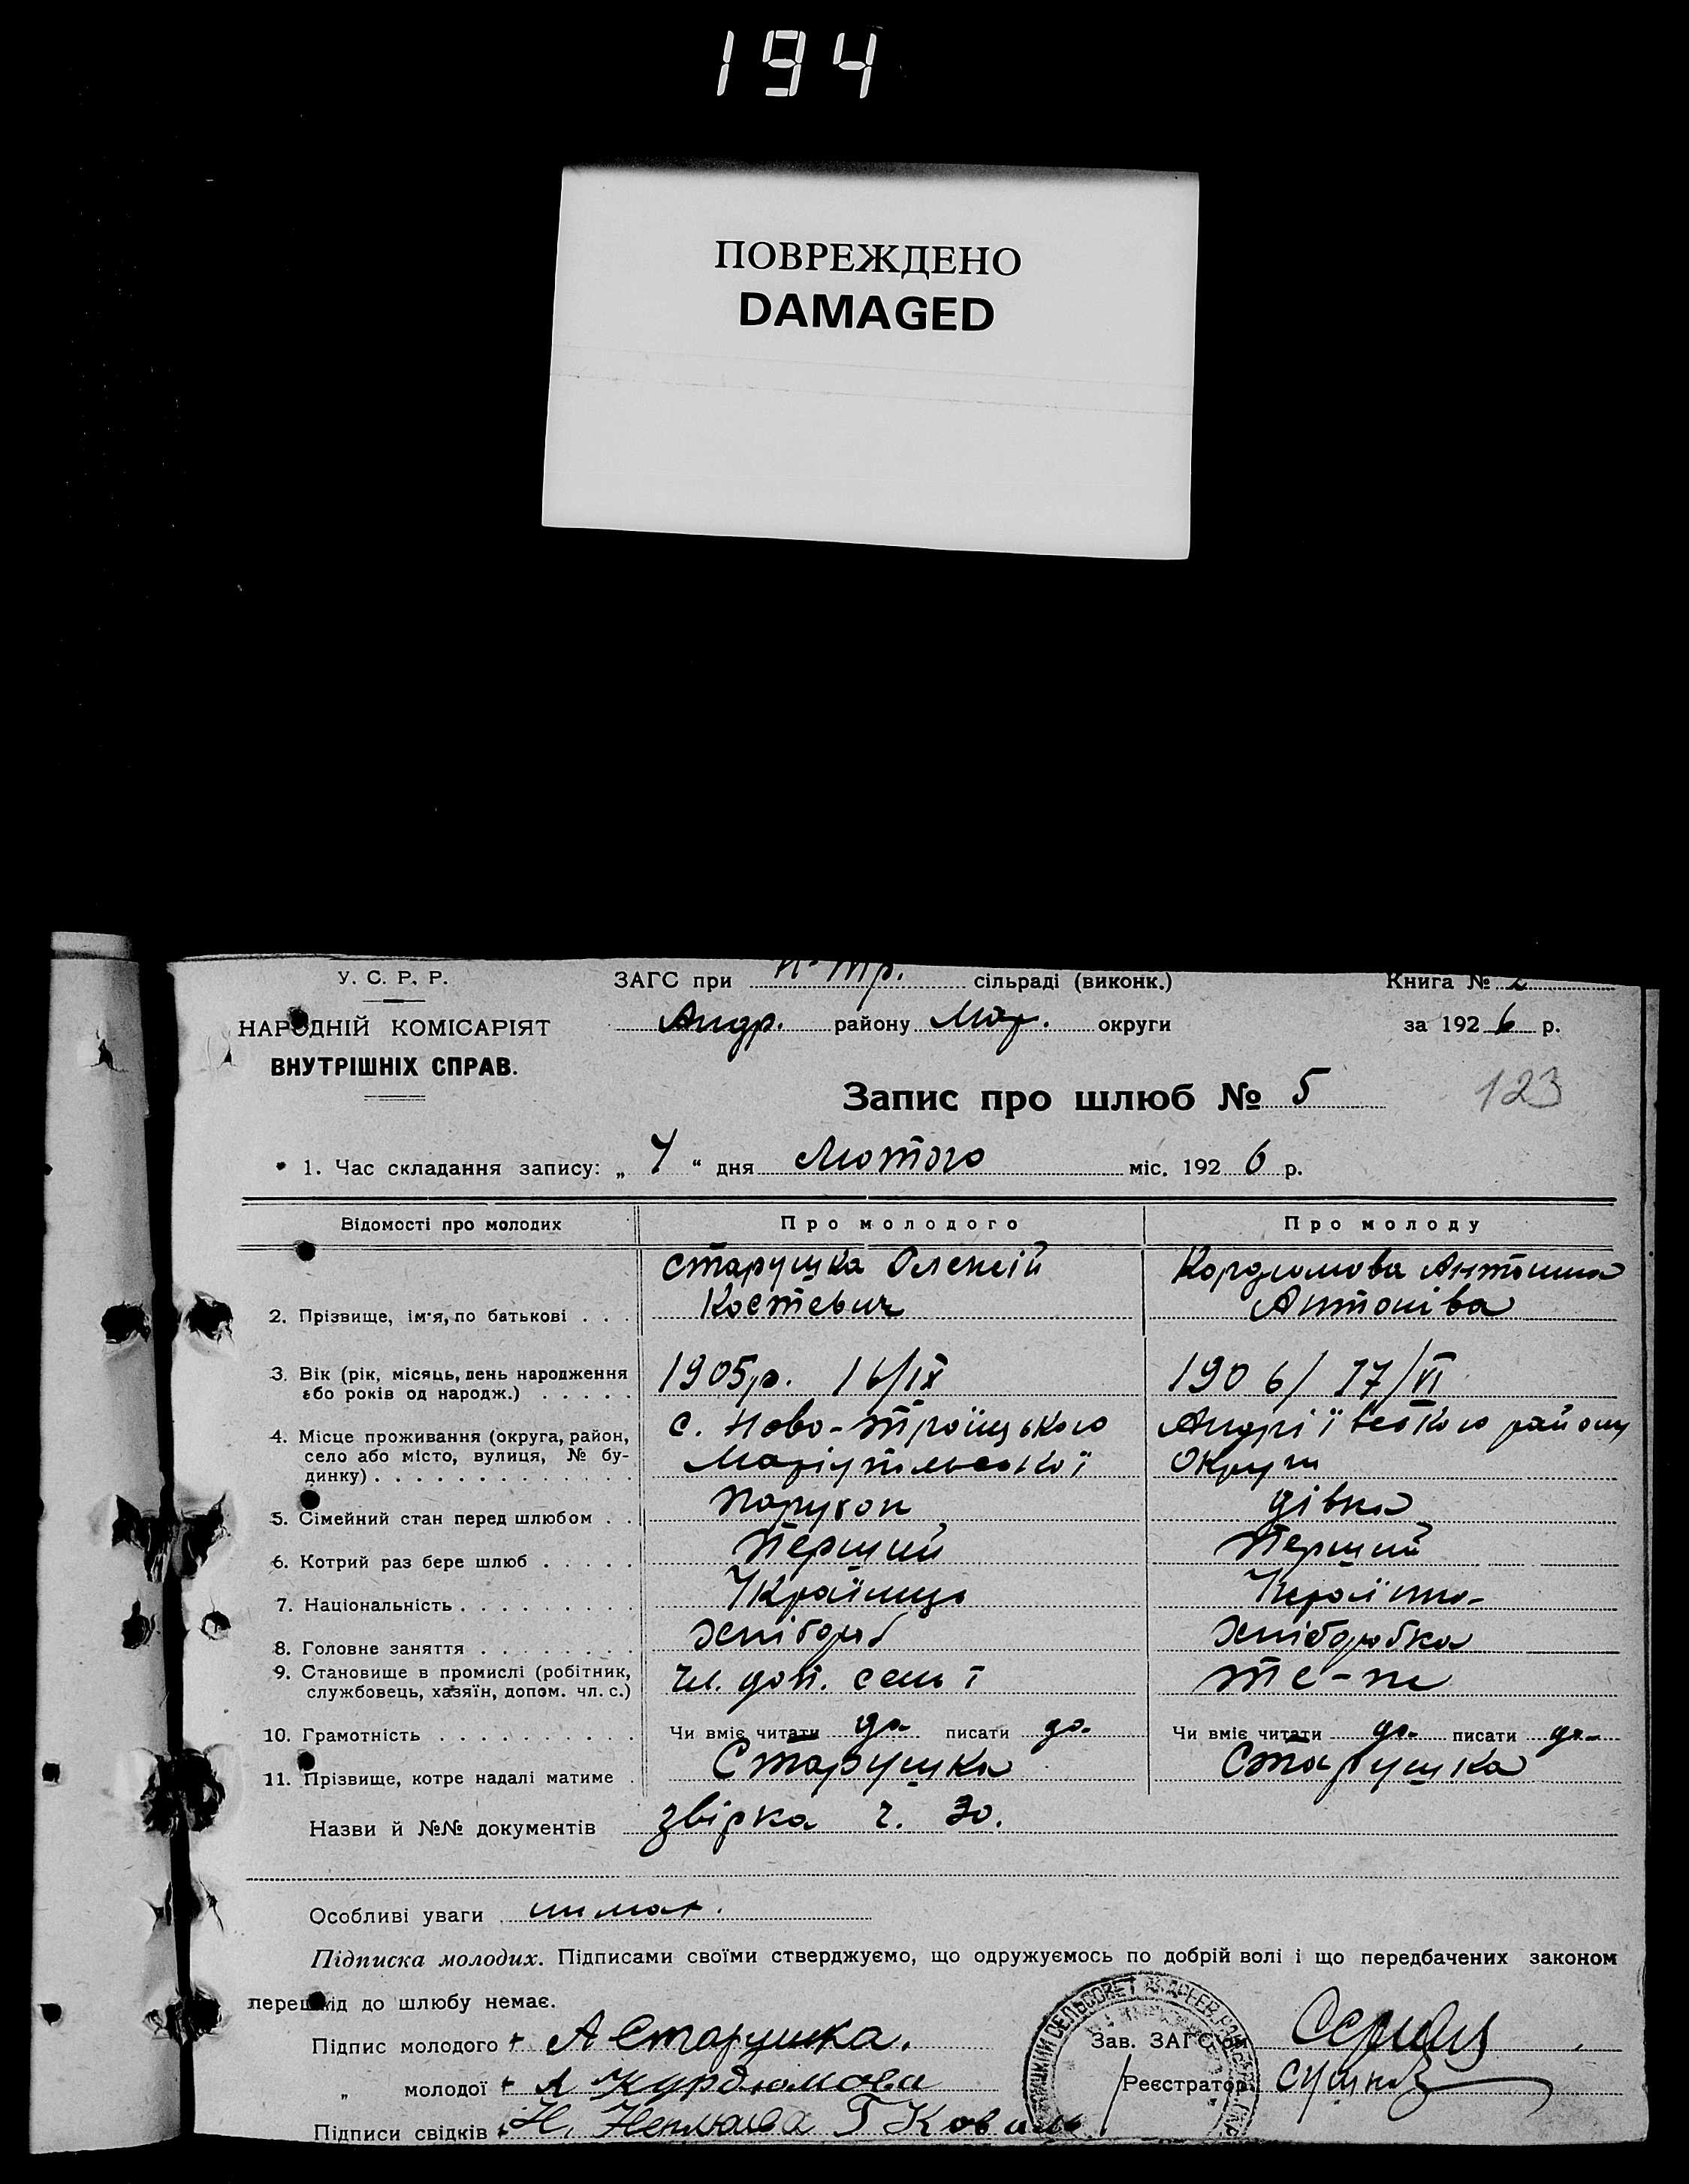 194
ПОВРЕЖДЕНО
DAMAGED
У. С. Р. Р.
ЗАГС при Н-Тр. сільраді (виконк.)
Книга № 2
НАРОДНІЙ КОМІСАРІЯТ
Андр. району Мар. округи
за 1926 р.
ВНУТРІШНІХ СПРАВ.
Запис про шлюб № 5
123
1. Час складання запису: „ 4 “ дня Лютого міс. 1926 р.
Відомості про молодих
Про молодого
Про молоду
2. Прізвище, ім'я, по батькові . . .
Старушка Олексій
Костевич
Кордюмова Антонина
Антонівa
3. Вік (рік, місяць, день народження
або років од народж.) . . . . .
1905р. 16/IX
1906/ 17/VI
4. Місце проживання (округа, район,
село або місто, вулиця, № бу-
динку) . . . . . . . . . . . . .
с. Ново-Троїцького
Маріупільської
Андріївського району
Округи
5. Сімейний стан перед шлюбом . .
парубок
дівка
6. Котрий раз бере шлюб . . . . .
Перший
Перший
7. Національність . . . . . . . . .
Українець
Українка
8. Головне заняття . . . . . . . .
Хлібороб
Хліборобка
9. Становище в промислі (робітник,
службовець, хазяїн, допом. чл. с.)
чл. доп. семї
те-ж
10. Грамотність . . . . . . . . . .
Чи вміє читати да писати да
Чи вміє читати да писати да
11. Прізвище, котре надалі матиме .
Старушка
Старушка
Назви й №№ документів звірка ч. 30.
Особливі уваги нимає.
Підписка молодих. Підписами своїми стверджуємо, що одружуємось по добрій волі і що передбачених законом
перешкід до шлюбу немає.
Підпис молодого + А Старушка.
Зав. ЗАГС'ом
„ молодої + А Курдюмова
Реєстратор
Підписи свідків + Н. Г Коваль